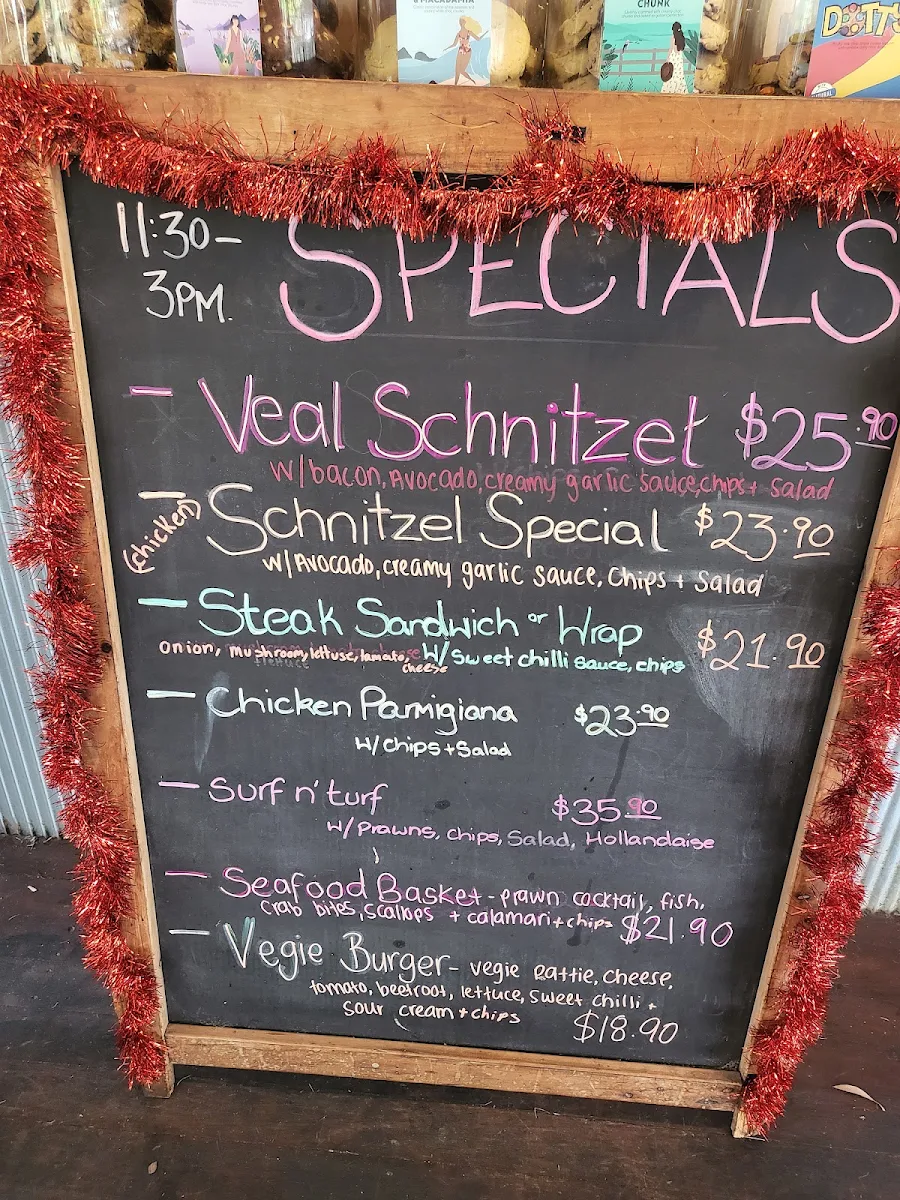 & MACADAMIA
CHUNK
DOTT
11:30-
3PM.
SPECIALS
- Veal Schnitzel $25.90
W/bacon, Avocado, creamy garlic sauce, chips + salad
- (chicken) Schnitzel Special $23.90
W/Avocado, creamy garlic sauce, Chips + Salad
- Steak Sandwich or Wrap $21.90
onion, mushroom, lettuse, tamato, cheese W/Sweet chilli sauce, chips
- Chicken Parmigiana $23.90
W/chips + Salad
- Surf n' turf $35.90
W/Prawns, chips, Salad, Hollandaise
- Seafood Basket - prawn cocktail, fish,
crab bites, scallops + calamari + chips $21.90
- Vegie Burger - vegie Pattie, cheese,
tomato, beetroot, lettuce, sweet chilli +
sour cream + chips $18.90